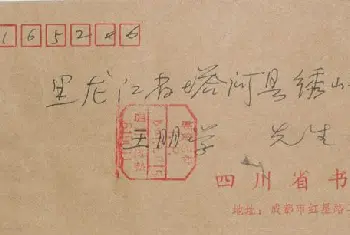 165244
黑龙江省塔河县绣山
王朋学 先生
四川省书
地址：成都市红星路